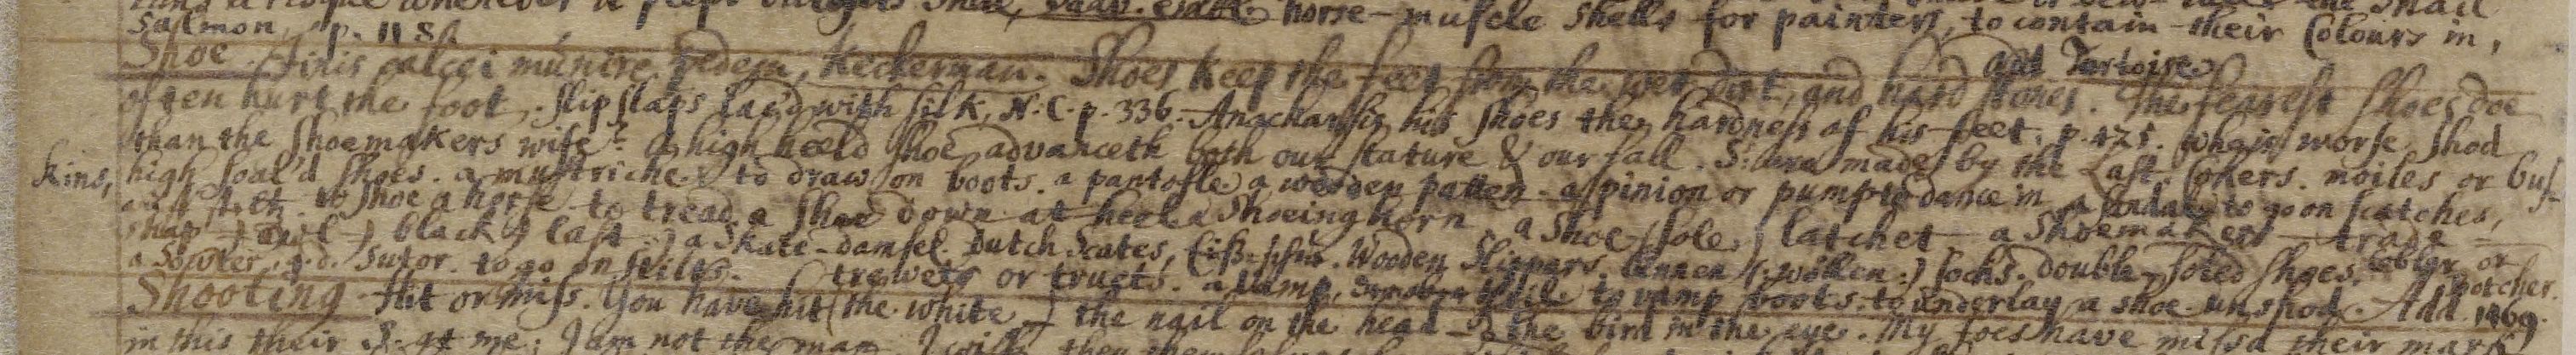 horse-muscle shells for painters, to contain their Colours in,
Salmon, p. 1181 and Tortoise
Shoe. Finis calcei munire pedem, Keckerman. Shoes keep the feet from the wet dirt, and hard stones. The fearest Shoes doe
often hurt the foot. Slipslaps lac'd with silk, N.C. p. 336. Anacharsis his shoes the hardness of his feet. p. 425. who is worse shod
than the shoemakers wife? a high heeld shoe advanceth both our stature & our fall. made by the Last. Cokers. moiles or bus-
kins, high soal'd shoes. a mustriche. to draw on boots. a pantofle. a wooden patten. a spinion or pump to dance in a sandal to go on scatches,
to shoe a horse to tread a shoe down at heel a Shoeing horn a Shoe (sole) latchet a Shoemakers trade
black last a Skate-damsel. Dutch Scates, Wooden Slippers. linnen (wollen) socks. double soled shoes. Cobler or botcher.
a Sowter, q.d. Sutor. to go on stilts. trewets or tructs. a vamp, to vamp boots. to underlay a shoe. unshod. Add. 1469.
Shooting. Hit or miss. You have hit (the white) the nail on the head the bird in the eye. My foes have miss'd their mark
in this their S. at me; I am not the man